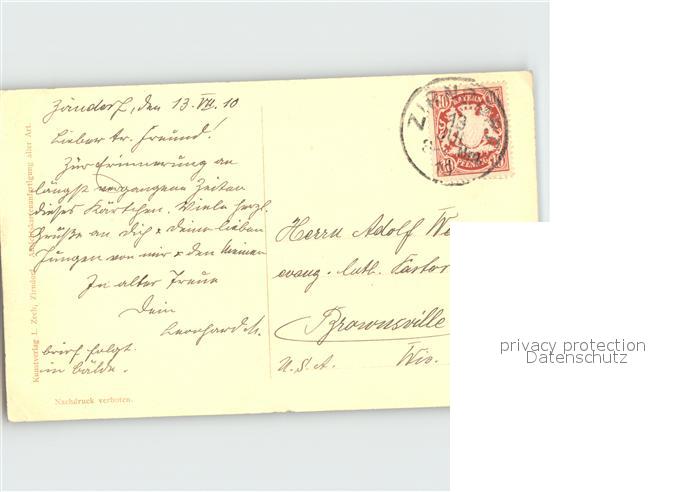 Zirndorf, den 13. VII. 10
Lieber tr. Freund!
Zur Erinnerung an
längst vergangene Zeiten
dieses Kärtchen. Viele herzl.
Grüße an dich & deine lieben
Jungen von mir & den Meinen
In alter Treue
Dein
Leonhard M.
brief folgt
in bälde.
Kunstverlag L. Zech, Zirndorf. Ansichtskartenanfertigung aller Art.
Nachdruck verboten.
BAYERN
10
PFENNIG
ZIRND
13
10
Herrn Adolf
evang. luth. Pastor
Brownsville
U.S.A. Wis.
privacy protection
Datenschutz